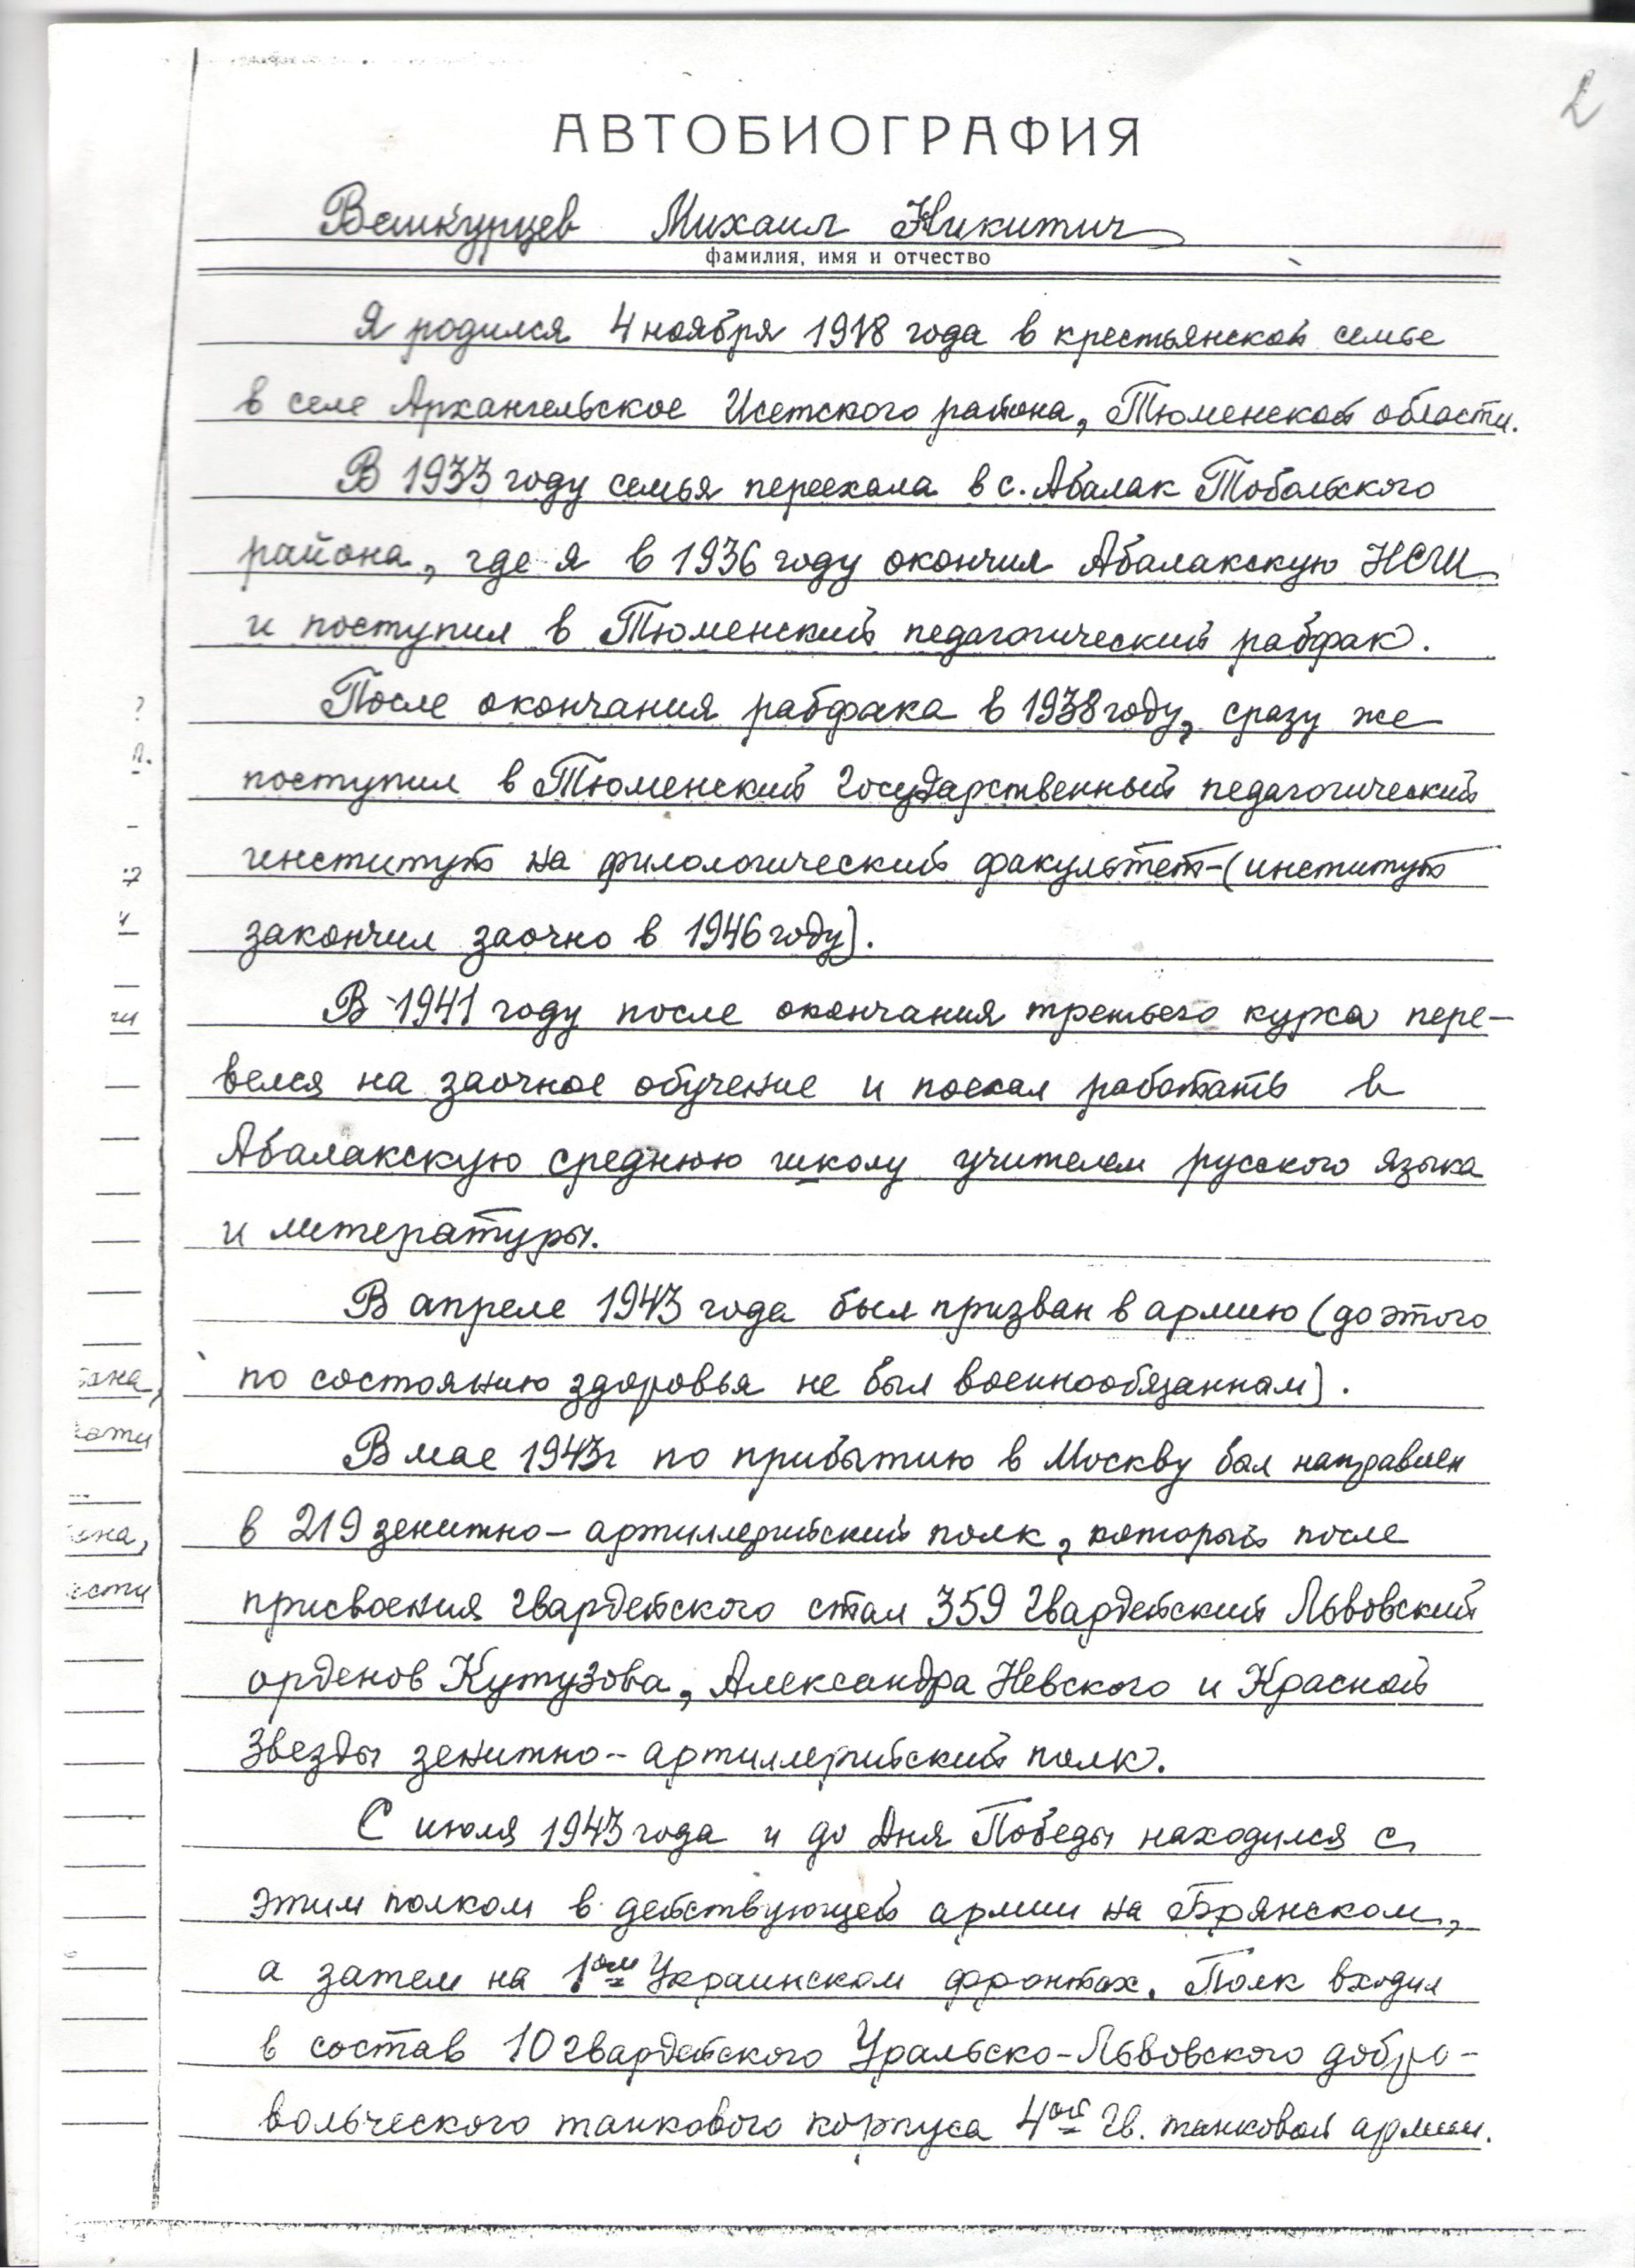 2
АВТОБИОГРАФИЯ
Вешкурцев Михаил Никитич
фамилия, имя и отчество
Я родился 4 ноября 1918 года в крестьянской семье
в селе Архангельское Исетского района, Тюменской области.
В 1933 году семья переехала в с. Абалак Тобольского
района, где я в 1936 году окончил Абалакскую НСШ
и поступил в Тюменский педагогический рабфак.
После окончания рабфака в 1938 году, сразу же
поступил в Тюменский Государственный педагогический
институт на филологический факультет (институт
закончил заочно в 1946 году).
В 1941 году после окончания третьего курса пере-
велся на заочное обучение и поехал работать в
Абалакскую среднюю школу учителем русского языка
и литературы.
В апреле 1943 года был призван в армию (до этого
по состоянию здоровья не был военнообязанным).
В мае 1943г по прибытию в Москву был направлен
в 219 зенитно-артиллерийский полк, который после
присвоения гвардейского стал 359 Гвардейский Львовский
орденов Кутузова, Александра Невского и Красной
Звезды зенитно-артиллерийский полк.
С июля 1943 года и до Дня Победы находился с
этим полком в действующей армии на Брянском,
а затем на 1ом Украинском фронтах. Полк входил
в состав 10 гвардейского Уральско-Львовского добро-
вольческого танкового корпуса 4ой Гв. танковой армии.